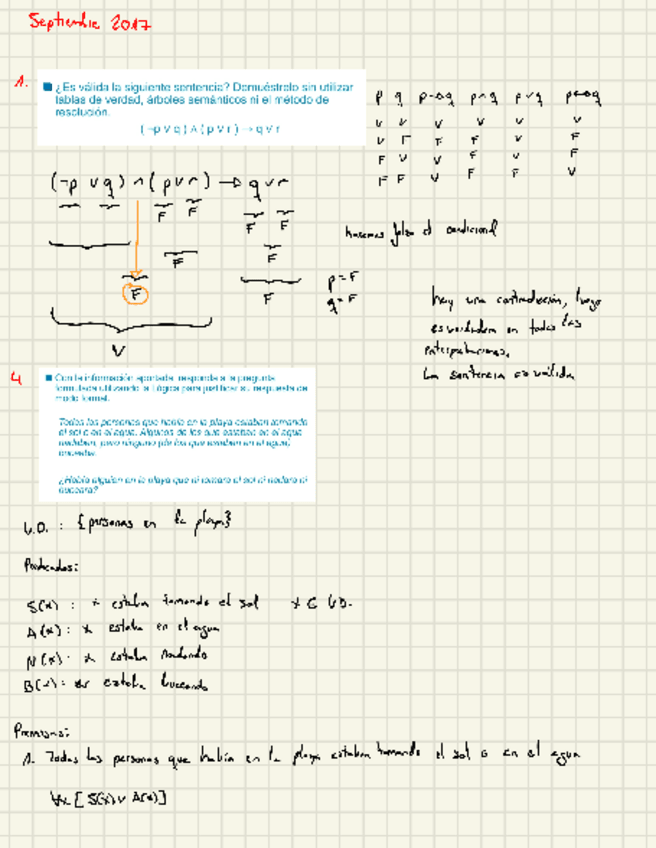 Septiembre 2017
1.
¿Es válida la siguiente sentencia? Demuéstrelo sin utilizar
tablas de verdad, árboles semánticos ni el método de
resolución.
(¬p ∨ q) ∧ (p ∨ r) → q ∨ r
p q p→q p∧q p∨q p↔q
V V V V V V
V F F F V F
F V V F V F
F F V F F V
(¬p ∨ q) ∧ (p ∨ r) → q ∨ r
F F
F F
F
F
F
F
V
hacemos falso el condicional
p = F
q = F
hay una contradicción, luego
es verdadera en todas las
interpretaciones.
La sentencia es válida
4
Con la información aportada, responda a la pregunta
formulada utilizando la Lógica para justificar su respuesta de
modo formal.
Todas las personas que había en la playa estaban tomando
el sol o en el agua. Algunos de los que estaban en el agua
nadaban, pero ninguno (de los que estaban en el agua)
buceaba.
¿Había alguien en la playa que ni tomara el sol ni nadara ni
buceara?
U.D. : {personas en la playa}
Predicados:
S(x) : x estaba tomando el sol x ∈ U.D.
A(x) : x estaba en el agua
N(x) : x estaba nadando
B(x) : x estaba buceando
Premisas:
1. Todas las personas que había en la playa estaban tomando el sol o en el agua
∀x [S(x) ∨ A(x)]